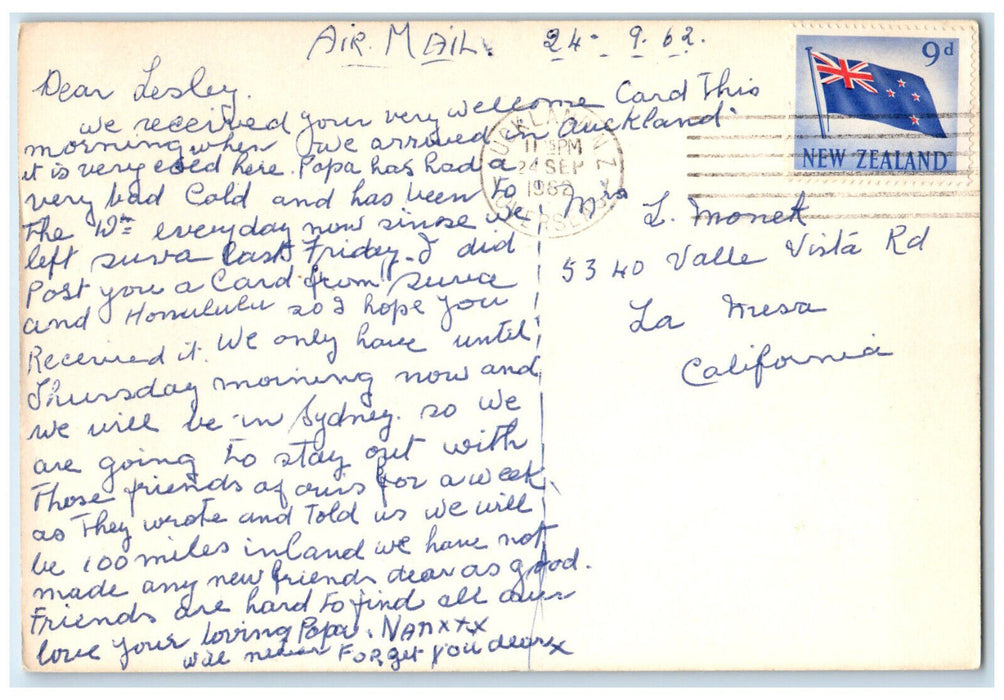 AIR. MAIL. 24- 9. 62.
9d
NEW ZEALAND
AUCKLAND N.Z.
11 PM
24 SEP
1962
Dear Lesley.
we received your very wellcome Card This
morning when we arrived in Auckland
it is very cold here. Papa has had a
very bad Cold and has been to
The Drn everyday now sinse we
left suva last Friday. I did
Post you a Card from Suva
and Honululu so I hope you
Received it. We only have until
Thursday morning now and
we will be in Sydney. so we
are going to stay out with
Those friends of ours for a week
as They wrote and Told us we will
be 100 miles inland we have not
made any new friends dear as good.
Friends are hard to find all our
love your loving Papa. NAN xxx
will never Forget you dear x
Mrs L. Monet
5340 Valle Vista Rd
La Mesa
California